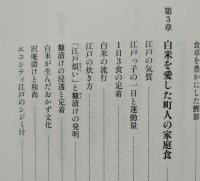 食卓を豊かにした鰹節
第3章 白米を愛した町人の家庭食
江戸の気質
江戸っ子の一日と運動量
1日3食の定着
白米の流行
江戸の炊き方
「江戸煩い」と糠漬けの発明
糠漬けの浸透と定着
白米が生んだおかず文化
沢庵漬けと和尚
エコシティ江戸のシジミ汁